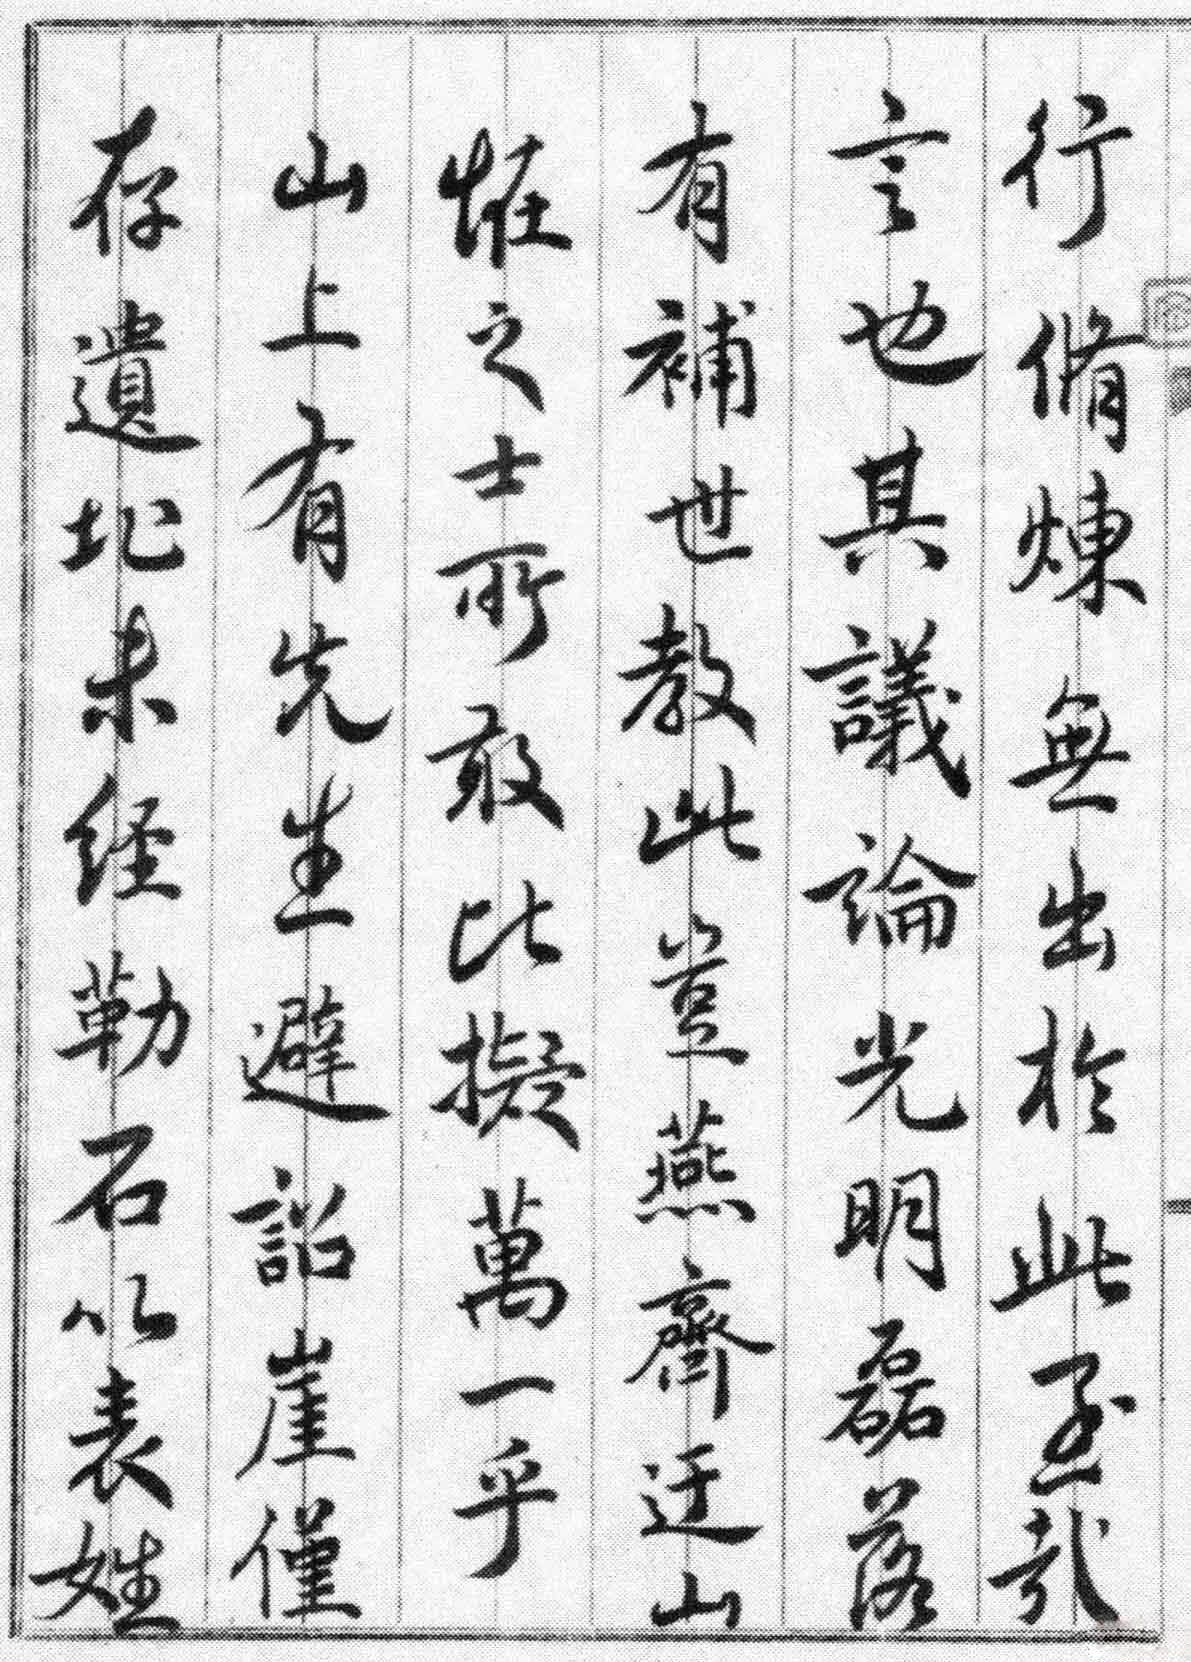 行脩煉無出於此至哉
言也其議論光明磊落
有補世教此豈燕齊迂
恠之士所敢比擬萬一乎
山上有先生避詔崖僅
存遺址未經勒石以表姓